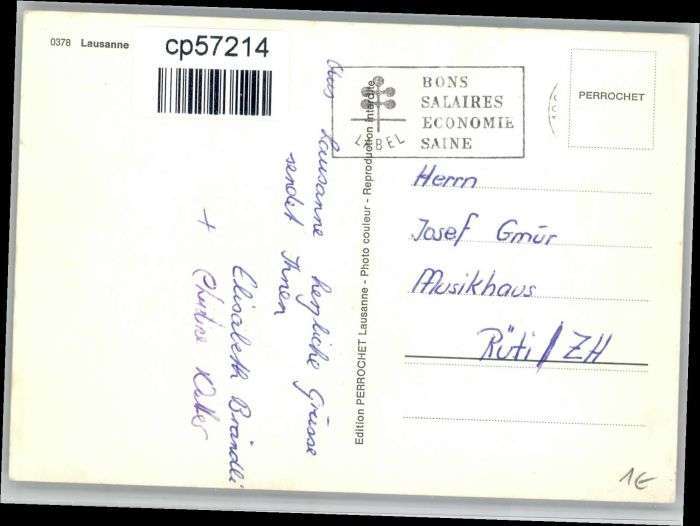 0378 Lausanne
cp57214
BONS
SALAIRES
ECONOMIE
SAINE
LABEL
PERROCHET
Edition PERROCHET Lausanne - Photo couleur - Reproduction interdite
Herrn
Josef Gmür
Musikhaus
Rüti / ZH
Lausanne herzliche Grüsse
sendet Ihnen
Elisabeth Brändli
+
1€